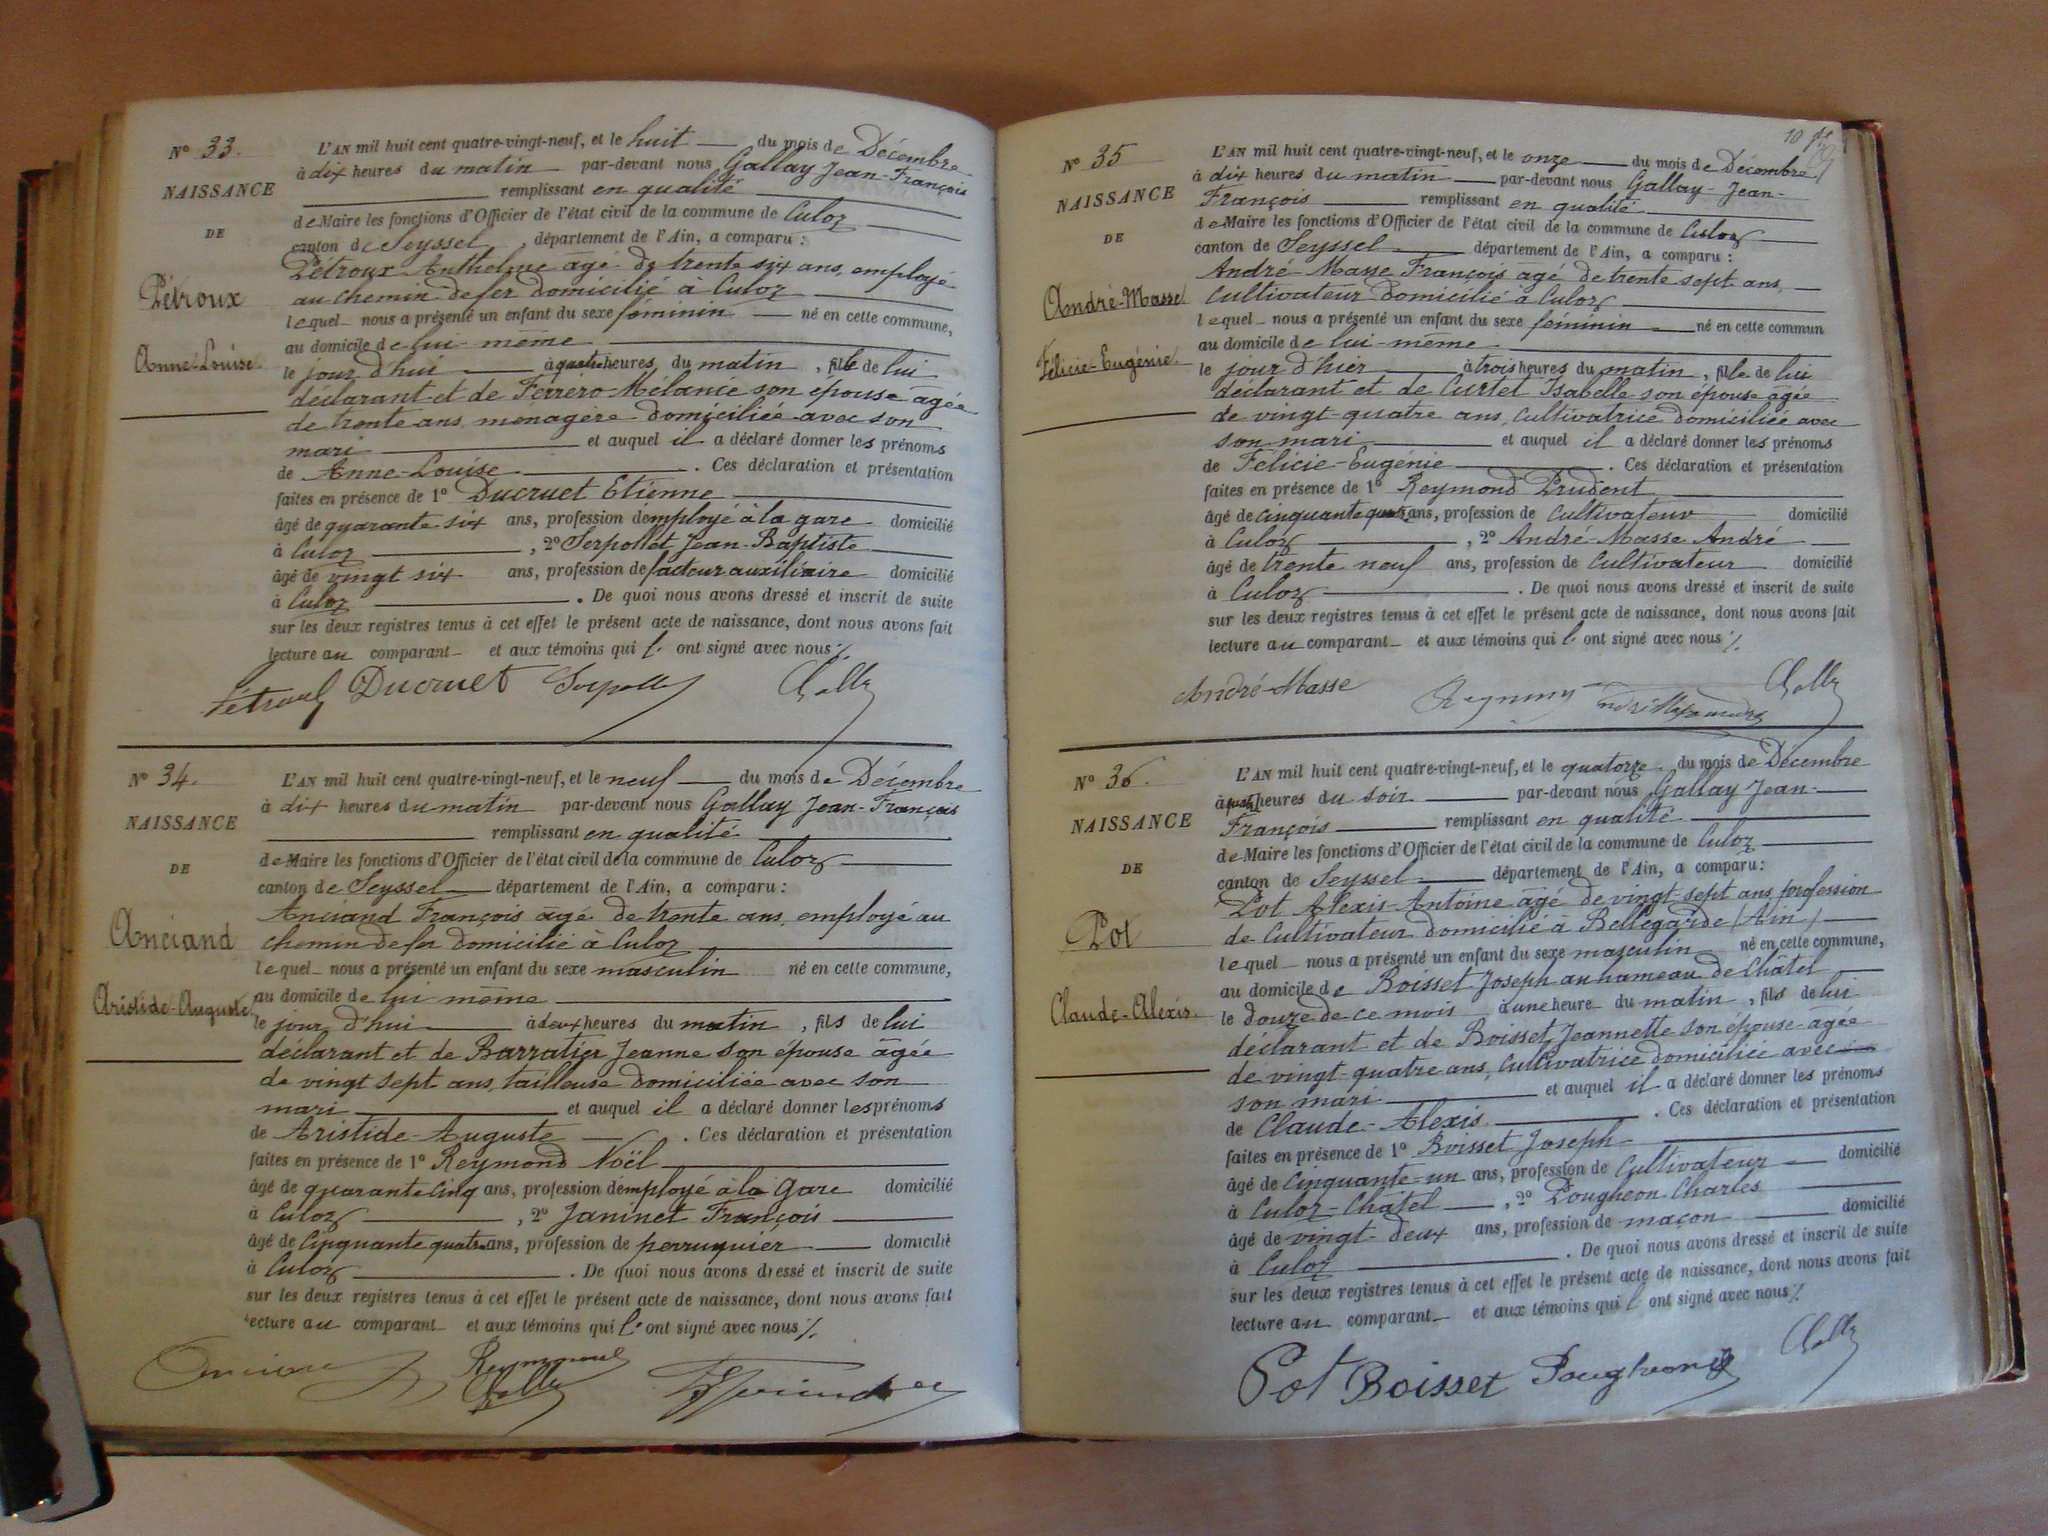 N° 33.
NAISSANCE
DE
Pétroux
Anne-Louise
L'AN mil huit cent quatre-vingt-neuf, et le huit du mois de Décembre
à dix heures du matin par-devant nous Gallay Jean-François
remplissant en qualité
de Maire les fonctions d'Officier de l'état civil de la commune de Culoz
canton de Seyssel, département de l'Ain, a comparu :
Pétroux Anthelme âgé de trente six ans, employé
au chemin de fer domicilié à Culoz
lequel nous a présenté un enfant du sexe féminin né en cette commune,
au domicile de lui-même
le jour d'hui à quatre heures du matin, fille de lui
déclarant et de Ferrero Mélanie son épouse âgée
de trente ans, menagère domiciliée avec son
mari et auquel il a déclaré donner les prénoms
de Anne-Louise. Ces déclaration et présentation
faites en présence de 1° Ducruet Etienne
âgé de quarante six ans, profession d'employé à la gare domicilié
à Culoz, 2° Serpollet Jean-Baptiste
âgé de vingt six ans, profession de facteur auxiliaire domicilié
à Culoz. De quoi nous avons dressé et inscrit de suite
sur les deux registres tenus à cet effet le présent acte de naissance, dont nous avons fait
lecture au comparant et aux témoins qui l' ont signé avec nous ./.
Pétroux Ducruet Serpollet Gallay
N° 34.
NAISSANCE
DE
Anciand
Aristide-Auguste
L'AN mil huit cent quatre-vingt-neuf, et le neuf du mois de Décembre
à dix heures du matin par-devant nous Gallay Jean-François
remplissant en qualité
de Maire les fonctions d'Officier de l'état civil de la commune de Culoz
canton de Seyssel département de l'Ain, a comparu :
Anciand François âgé de trente ans, employé au
chemin de fer domicilié à Culoz
lequel nous a présenté un enfant du sexe masculin né en cette commune,
au domicile de lui même
le jour d'hui à deux heures du matin, fils de lui
déclarant et de Barratier Jeanne son épouse âgée
de vingt sept ans, tailleuse domiciliée avec son
mari et auquel il a déclaré donner les prénoms
de Aristide-Auguste. Ces déclaration et présentation
faites en présence de 1° Reymond Noël
âgé de quarante cinq ans, profession d'employé à la Gare domicilié
à Culoz, 2° Janinet François
âgé de Cinquante quatre ans, profession de perruquier domicilié
à Culoz. De quoi nous avons dressé et inscrit de suite
sur les deux registres tenus à cet effet le présent acte de naissance, dont nous avons fait
lecture au comparant et aux témoins qui l' ont signé avec nous ./.
Reymond
Gallay
10
N° 35
NAISSANCE
DE
André-Masse
Félicie-Eugénie
L'AN mil huit cent quatre-vingt-neuf, et le onze du mois de Décembre
à dix heures du matin par-devant nous Gallay Jean-
François remplissant en qualité
de Maire les fonctions d'Officier de l'état civil de la commune de Culoz
canton de Seyssel département de l'Ain, a comparu :
André-Masse François âgé de trente sept ans
cultivateur domicilié à Culoz
lequel nous a présenté un enfant du sexe féminin né en cette commun
au domicile de lui-même
le jour d'hier à trois heures du matin, fille de lui
déclarant et de Curtet Isabelle son épouse âgée
de vingt-quatre ans, cultivatrice domiciliée avec
son mari et auquel il a déclaré donner les prénoms
de Félicie-Eugénie. Ces déclaration et présentation
faites en présence de 1° Reymond Prudent
âgé de cinquante quatre ans, profession de cultivateur domicilié
à Culoz, 2° André-Masse André
âgé de trente neuf ans, profession de Cultivateur domicilié
à Culoz. De quoi nous avons dressé et inscrit de suite
sur les deux registres tenus à cet effet le présent acte de naissance, dont nous avons fait
lecture au comparant et aux témoins qui l' ont signé avec nous ./.
André-Masse Gallay
N° 36.
NAISSANCE
DE
Pot
Claude-Alexis
L'AN mil huit cent quatre-vingt-neuf, et le quatorze du mois de Décembre
à quatre heures du soir par-devant nous Gallay Jean-
François remplissant en qualité
de Maire les fonctions d'Officier de l'état civil de la commune de Culoz
canton de Seyssel département de l'Ain, a comparu :
Pot Alexis-Antoine âgé de vingt sept ans, profession
de Cultivateur domicilié à Bellegarde (Ain)
lequel nous a présenté un enfant du sexe masculin né en cette commune,
au domicile de Boisset Joseph au hameau de Châtel
le douze de ce mois à une heure du matin, fils de lui
déclarant et de Boisset Jeannette son épouse âgée
de vingt-quatre ans, Cultivatrice domiciliée avec
son mari et auquel il a déclaré donner les prénoms
de Claude-Alexis. Ces déclaration et présentation
faites en présence de 1° Boisset Joseph
âgé de Cinquante-un ans, profession de Cultivateur domicilié
à Culoz-Châtel, 2° Pougheon Charles
âgé de vingt-deux ans, profession de maçon domicilié
à Culoz. De quoi nous avons dressé et inscrit de suite
sur les deux registres tenus à cet effet le présent acte de naissance, dont nous avons fait
lecture au comparant et aux témoins qui l' ont signé avec nous ./.
Pot Boisset Pougheon Gallay